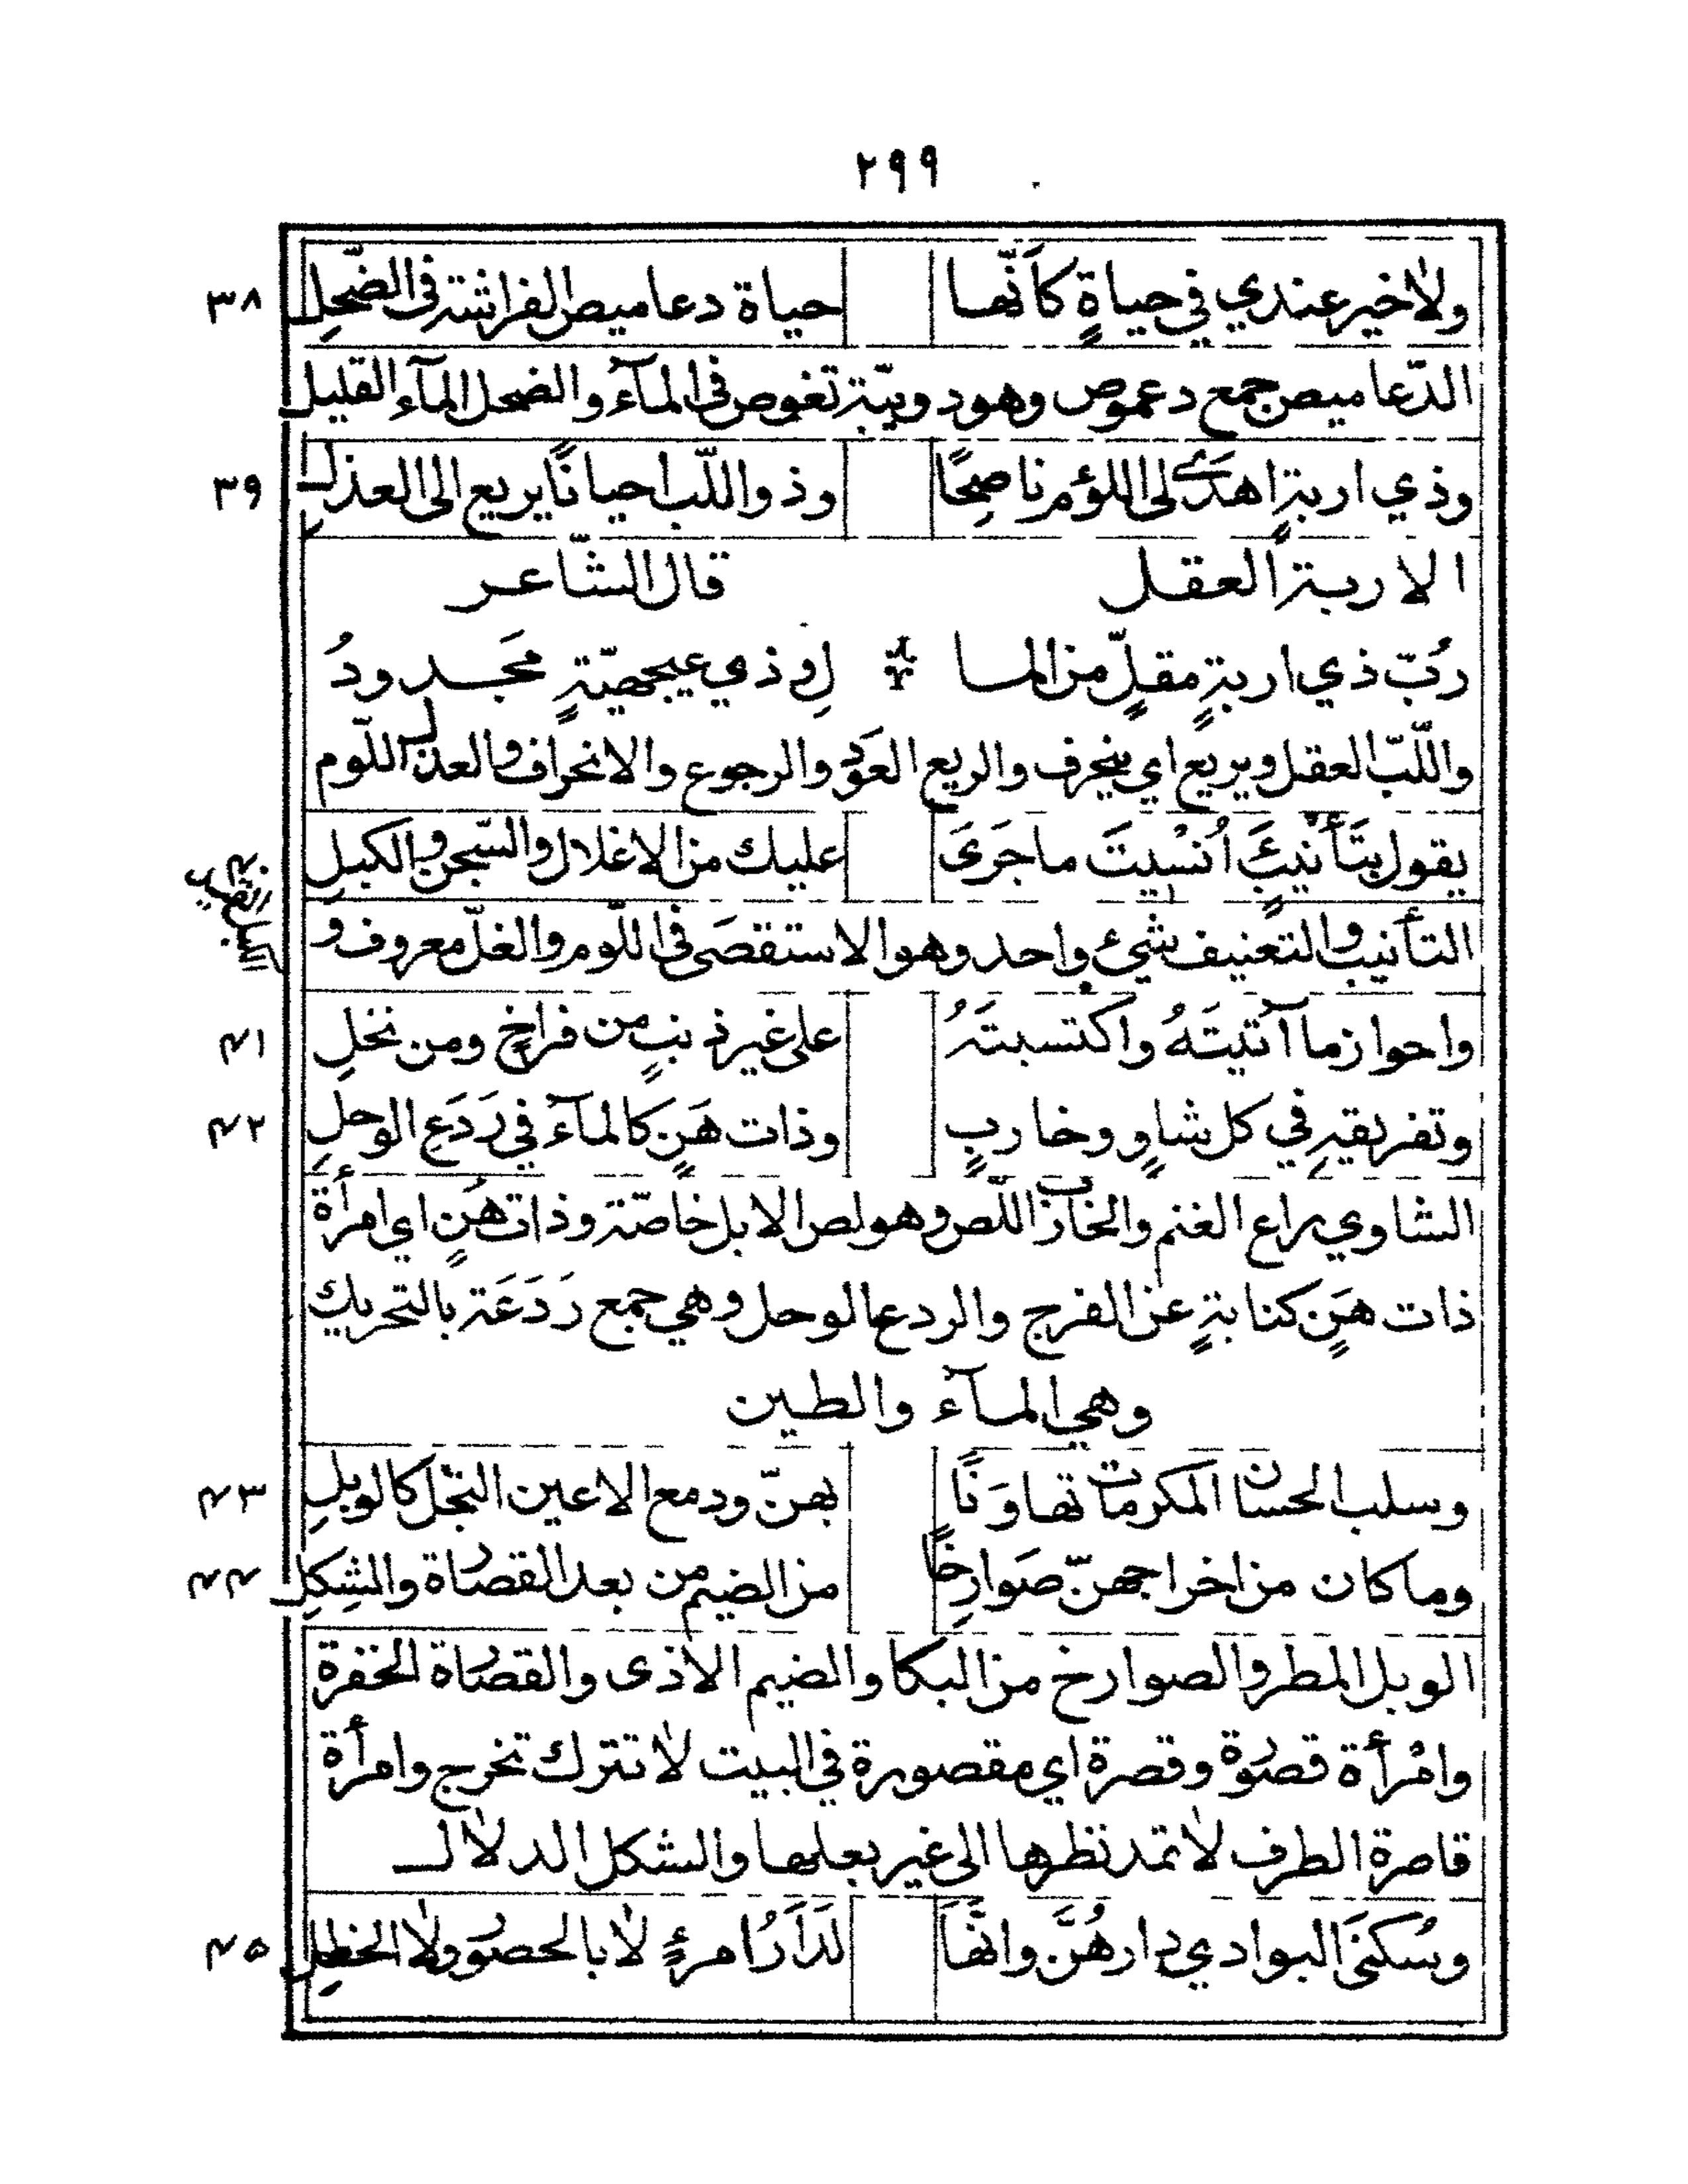 ٢٩٩
ولا خير عندي في حياةٍ كأنّها حياة دعاميص الفراشة في الضّحلِ ٣٨
الدّعاميص جمع دعموص وهو دويبّة تغوص في المآء والضحل المآء القليل
وذي اربةٍ اهدَى لى اللؤم ناصِحًا وذو اللّب احيانًا يريع الى العذلِ ٣٩
الاربة العقل قال الشّاعر
رُبّ ذي اربةٍ مقلٍّ من الما لِ وذي عيجهيّةٍ مَجدودُ
واللّبّ العقل ويريع اي ينحرف والريع العَوْد والرجوع والانحراف والعذل اللّوم
يقول بتَأنيبٍ أَنُسْيتَ ما جَرَىَ عليك من الاغلال والسّجن والكبلِ
الكبل القيد
التأنيب والتعنيف شيئ واحد وهو الاستقصَى في اللّوم والغلّ معروف و
واحواز ما آتيتَهُ واكتسبتَهُ على غير ذنبٍ من فراخٍ ومن نخلِ ٤١
وتفريقه في كل شاوٍ وخاربٍ وذات هَنٍ كالمآء في رَدَعِ الوحلِ ٤٢
الشاوي راع الغنم والخارب اللّص وهو لص الابل خاصّة وذات هَنٍ اي امرأة
ذات هَنٍ كناية عن الفرج والردع الوحل وهي جمع رَدَعَة بالتحريك
وهي المآء والطين
وسلب الحسان المكرمات تهاوَنًا بهنّ ودمع الاعين النجْل كالوبلِ ٤٣
وما كان من اخراجهنّ صَوارِخًا من الضيم من بعد القصارة والشِكلِ ٤٤
الوبل المطر والصوارخ من البكا والضيم الاذى والقصارة الخفرة
وامْرأة قصورة وقصرة اي مقصورة في البيت لا تترك تخرج وامرأة
قاصرة الطرف لا تمد نظرها الى غير بعلها والشكل الدلال
وسُكنَى البوادي دار هُنَّ وانّهَا لدَارُ امرءٍ لا بالحصور ولا الخطلِ ٤٥